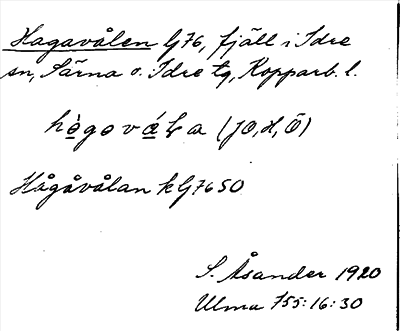 Hagavålen G76, fjäll i Idre
sn, Särna o. Idre tg, Kopparb. l.
hògovála (JO, H, Ö)
Hågåvålan k G7650
S. Åsander 1920
Ulma 755:16:30